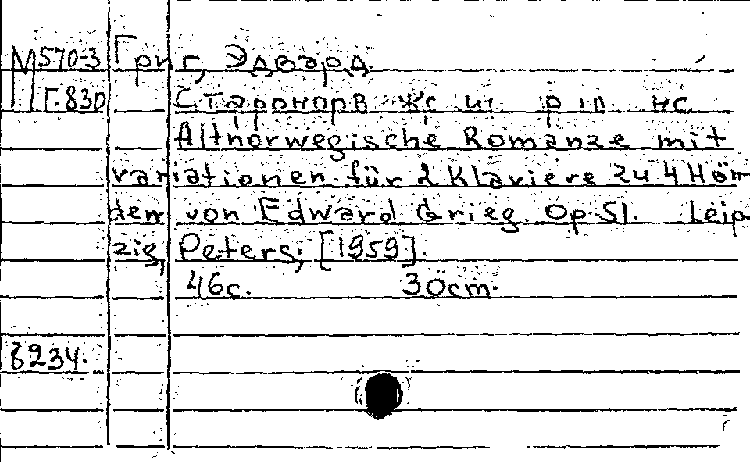 М570-3 Григ, Эдвард.
Г.830
Altnorwegische Romanze mit
variationen für 2 Klaviere zu 4 Hän
den von Edward Grieg. Op 51. Leip
zig, Peters, [1959].
46с. 30cm.
8234.